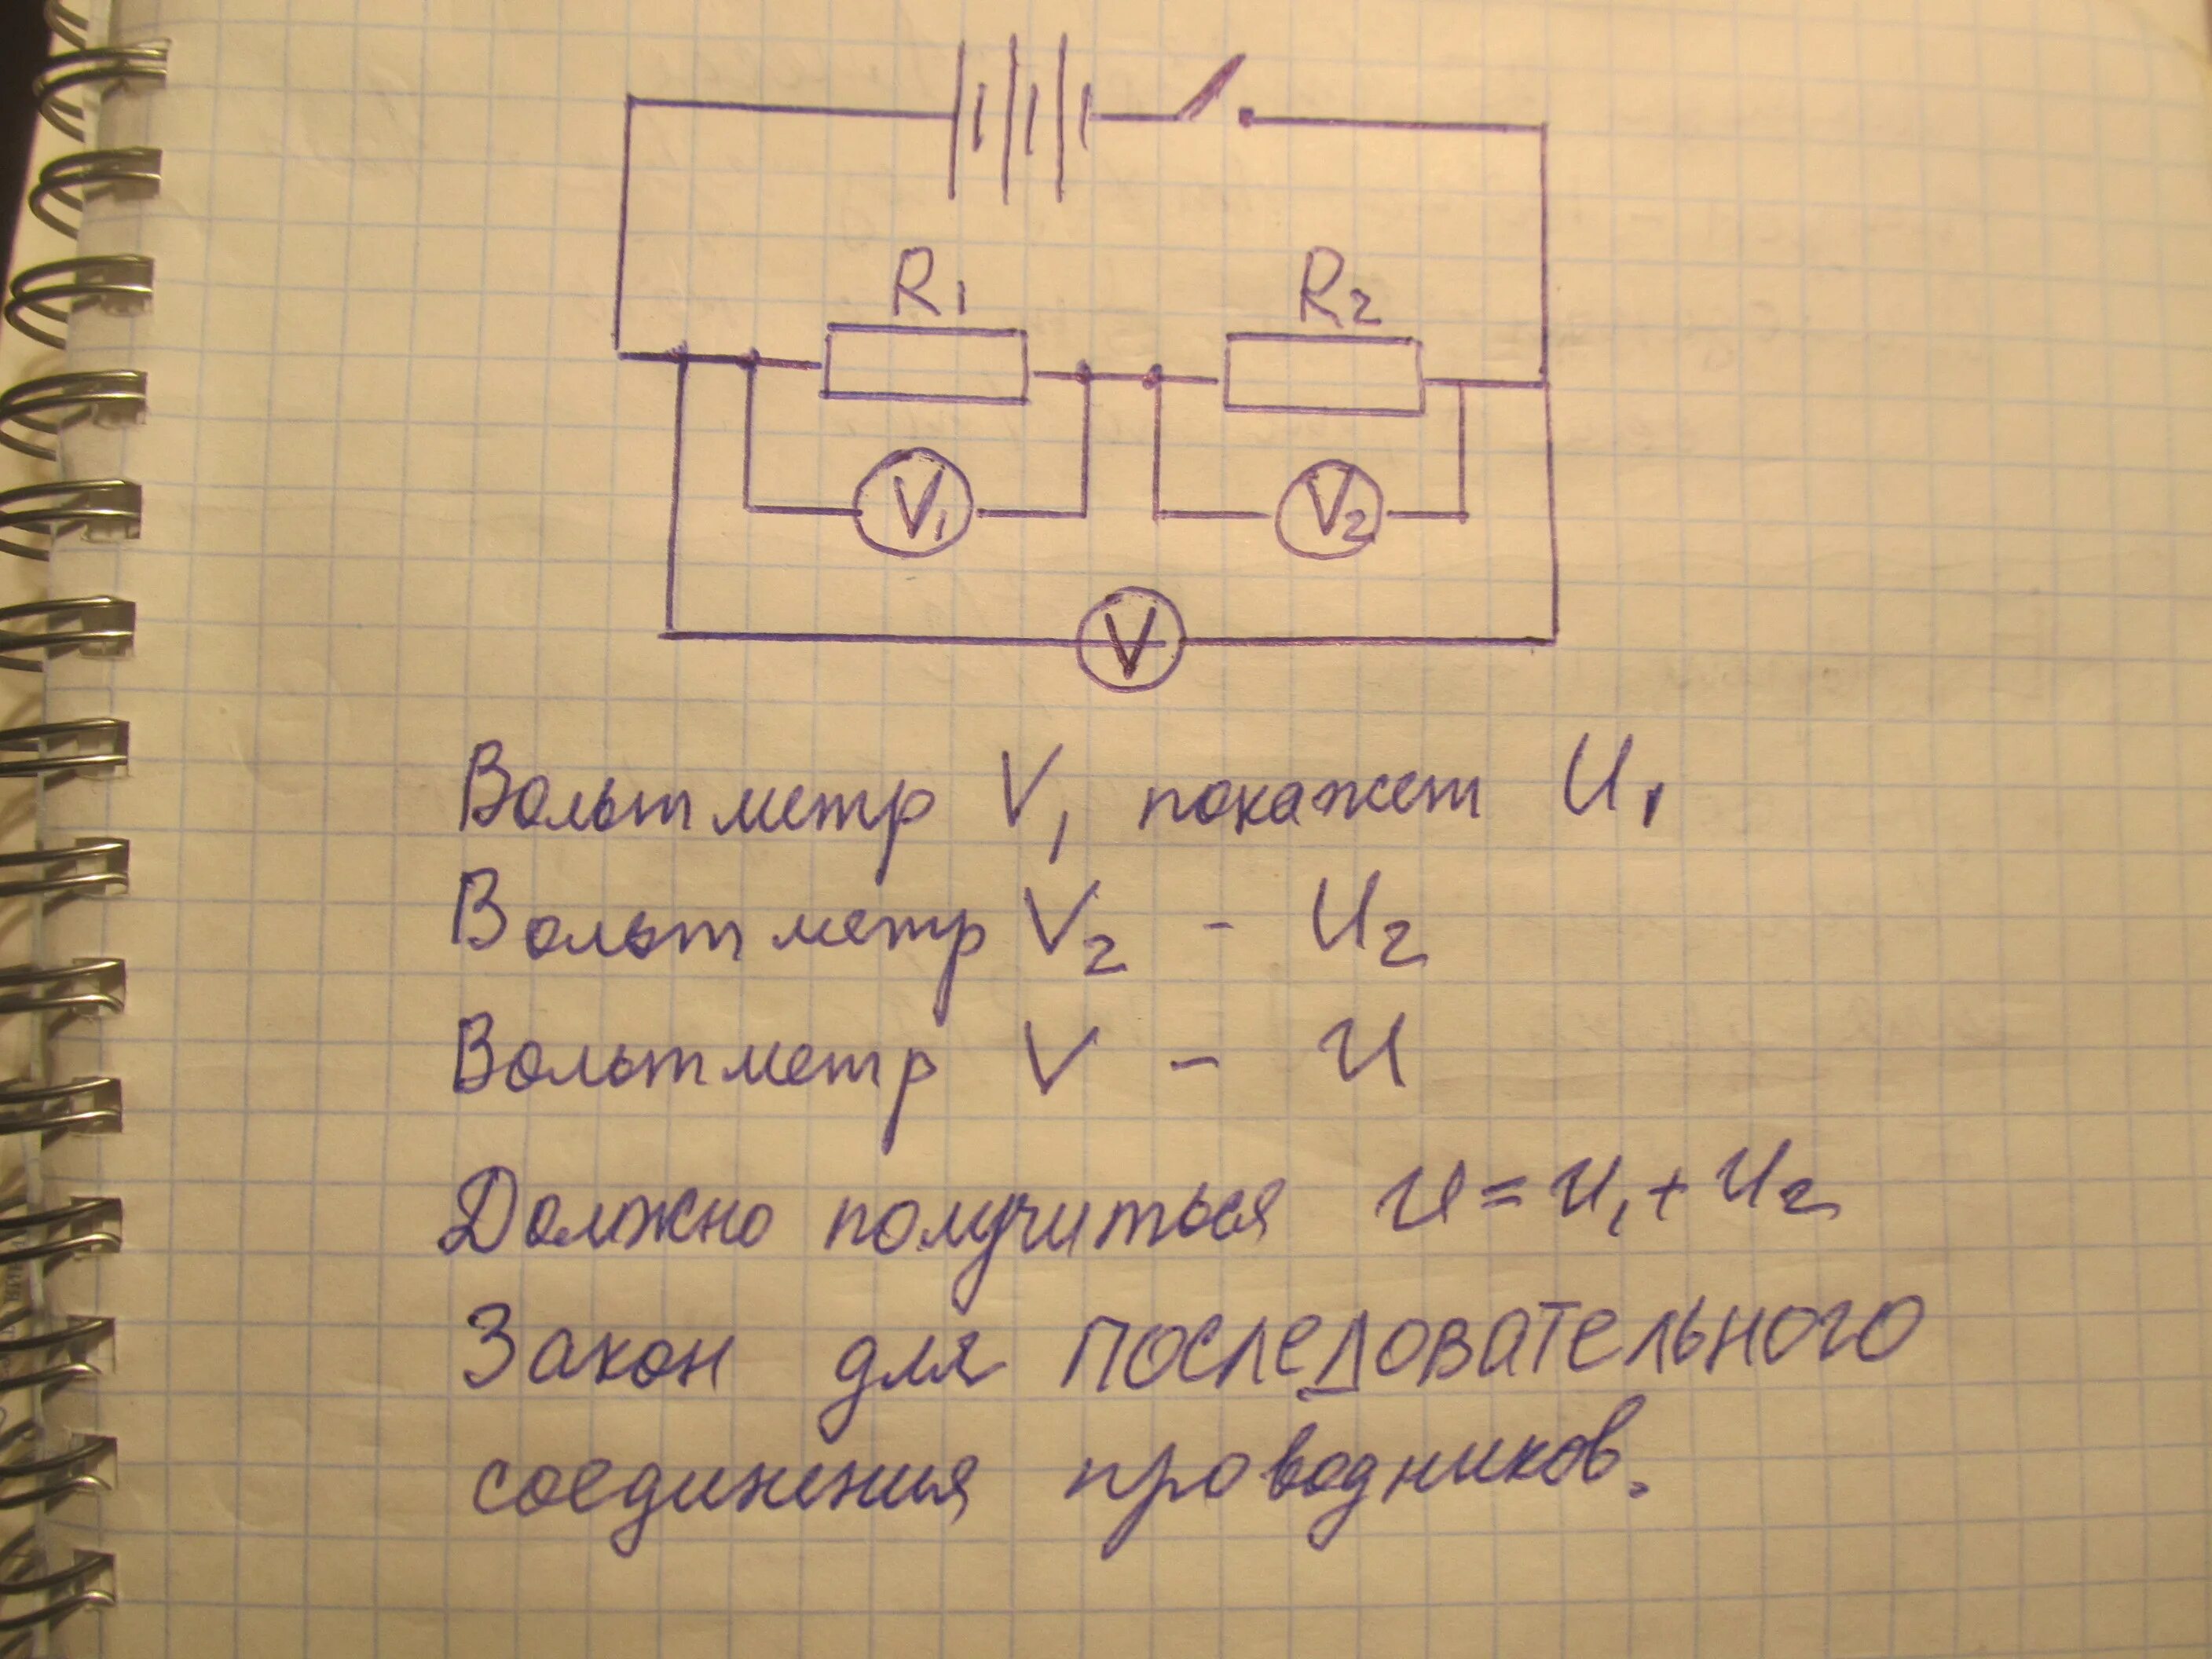 R1 R2
V1 V2
V
Вольтметр V1 покажет U1
Вольтметр V2 - U2
Вольтметр V - U
Должно получиться U=U1+U2
Закон для ПОСЛЕДОВАТЕЛЬНОГО
соединения проводников.